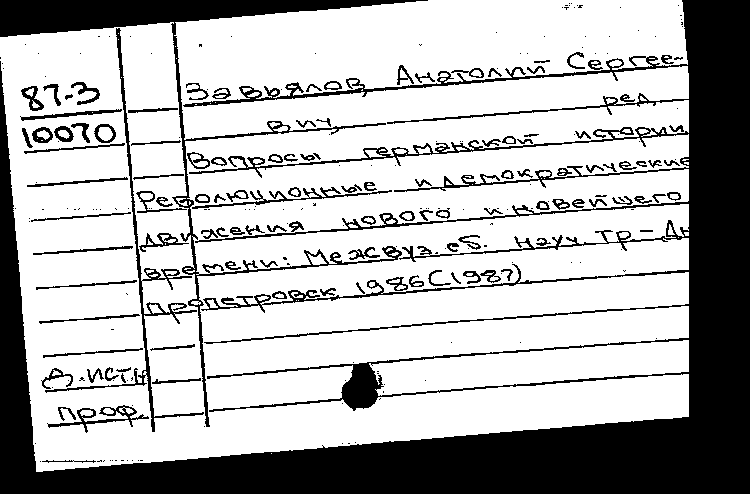 87-3
10070
Завьялов, Анатолий Сергее-
вич, ред.
Вопросы германской истории
Революционные и демократические
движения нового и новейшего
времени: Межвуз. сб. науч. тр - Дн
пропетровск, 1986 (1987).
Д. ист. н.
проф.